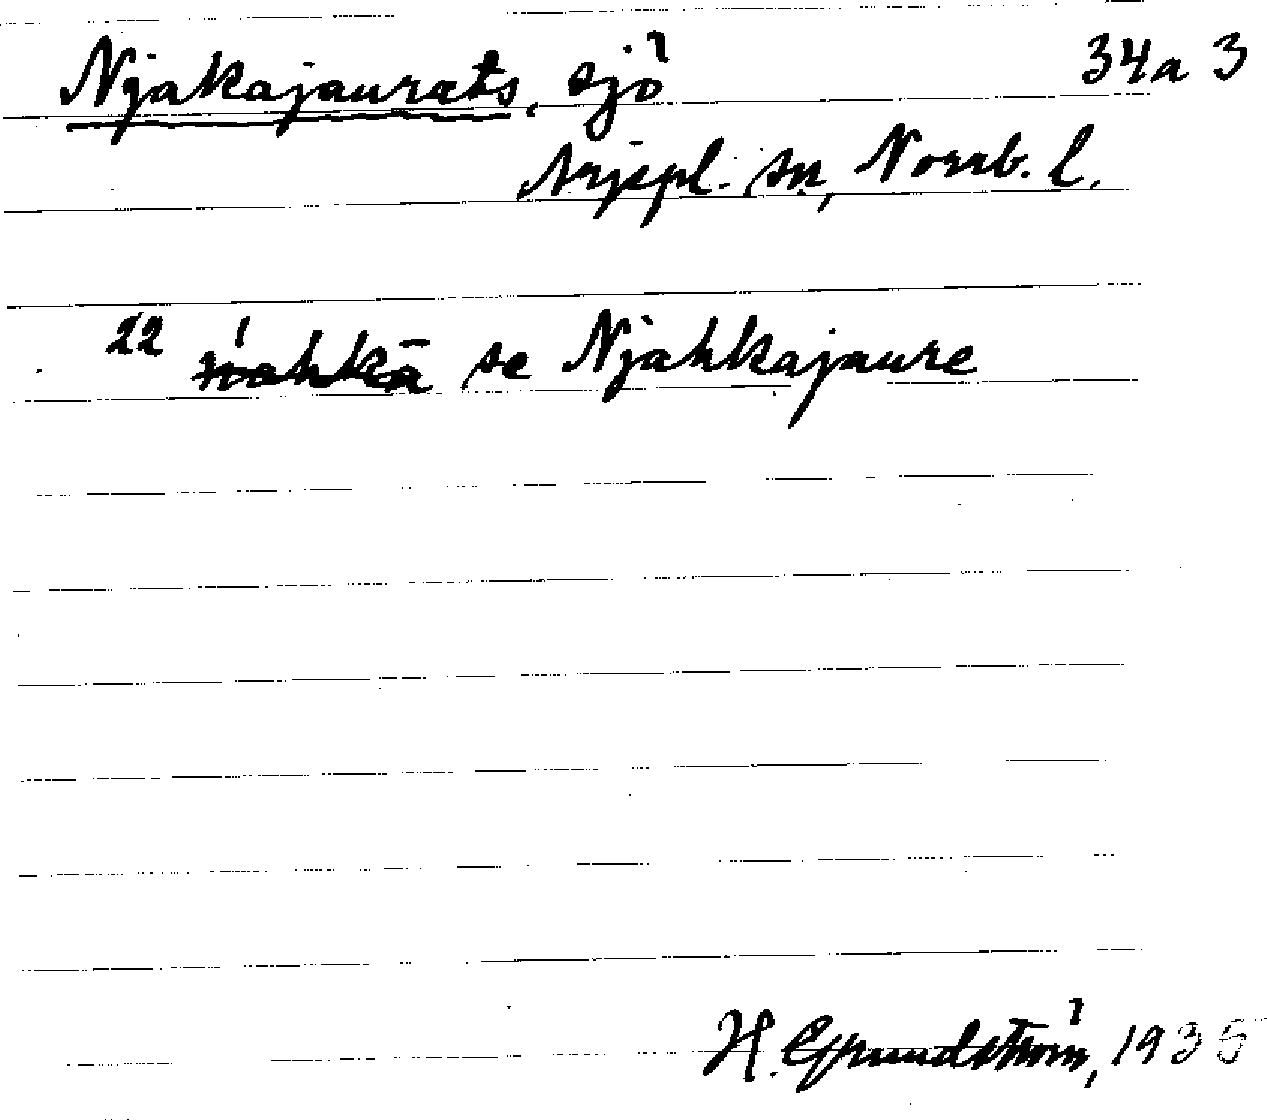 Njakajaurats, sjö 34a 3
Arjepl. sn, Norrb. l.
22 se Njahkajaure
H. Grundström, 1935